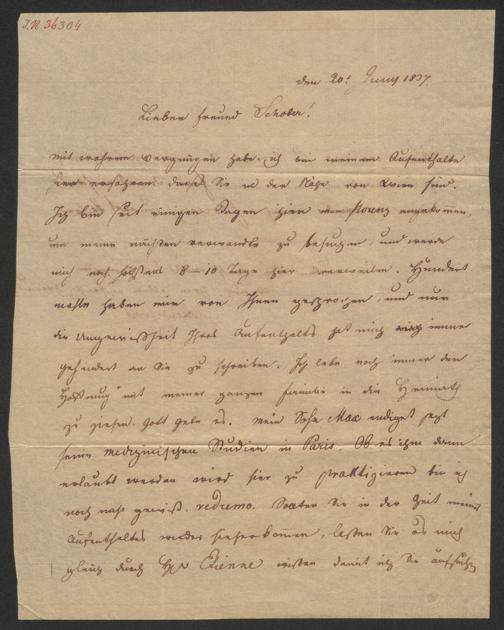 J.N. 36304
den 20t Juny 1837.
Lieber Freund Schober!
mit wahrem Vergnügen habe ich bei meinem Aufenthalte
hier erfahren daß Sie in der Nähe von Wien sind.
Ich bin seit einigen Tagen hier von Florenz angekommen,
um meine nächsten Verwandte zu besuchen, und werde
mich noch höchstens 8-10 Tage hier verweilen. Hundert
mahle haben wir von Ihnen gesprochen, und nur
die Ungewißheit Ihres Aufenthalts hat mich immer
gehindert an Sie zu schreiben. Ich lebe noch immer der
Hoffnung mit meiner ganzen Familie in die Heimath
zu ziehen. Gott gebe es. Mein Sohn Max endiget jetzt
seine medizinischen Studien in Paris. Ob es ihm dann
erlaubt werden wird hier zu praktizieren bin ich
noch nicht gewiß. vedremo. Sollten Sie in der Zeit meines
Aufenthaltes wieder hieherkommen, lassen Sie es mich
gleich durch Etienne wissen damit ich Sie aufsuchen